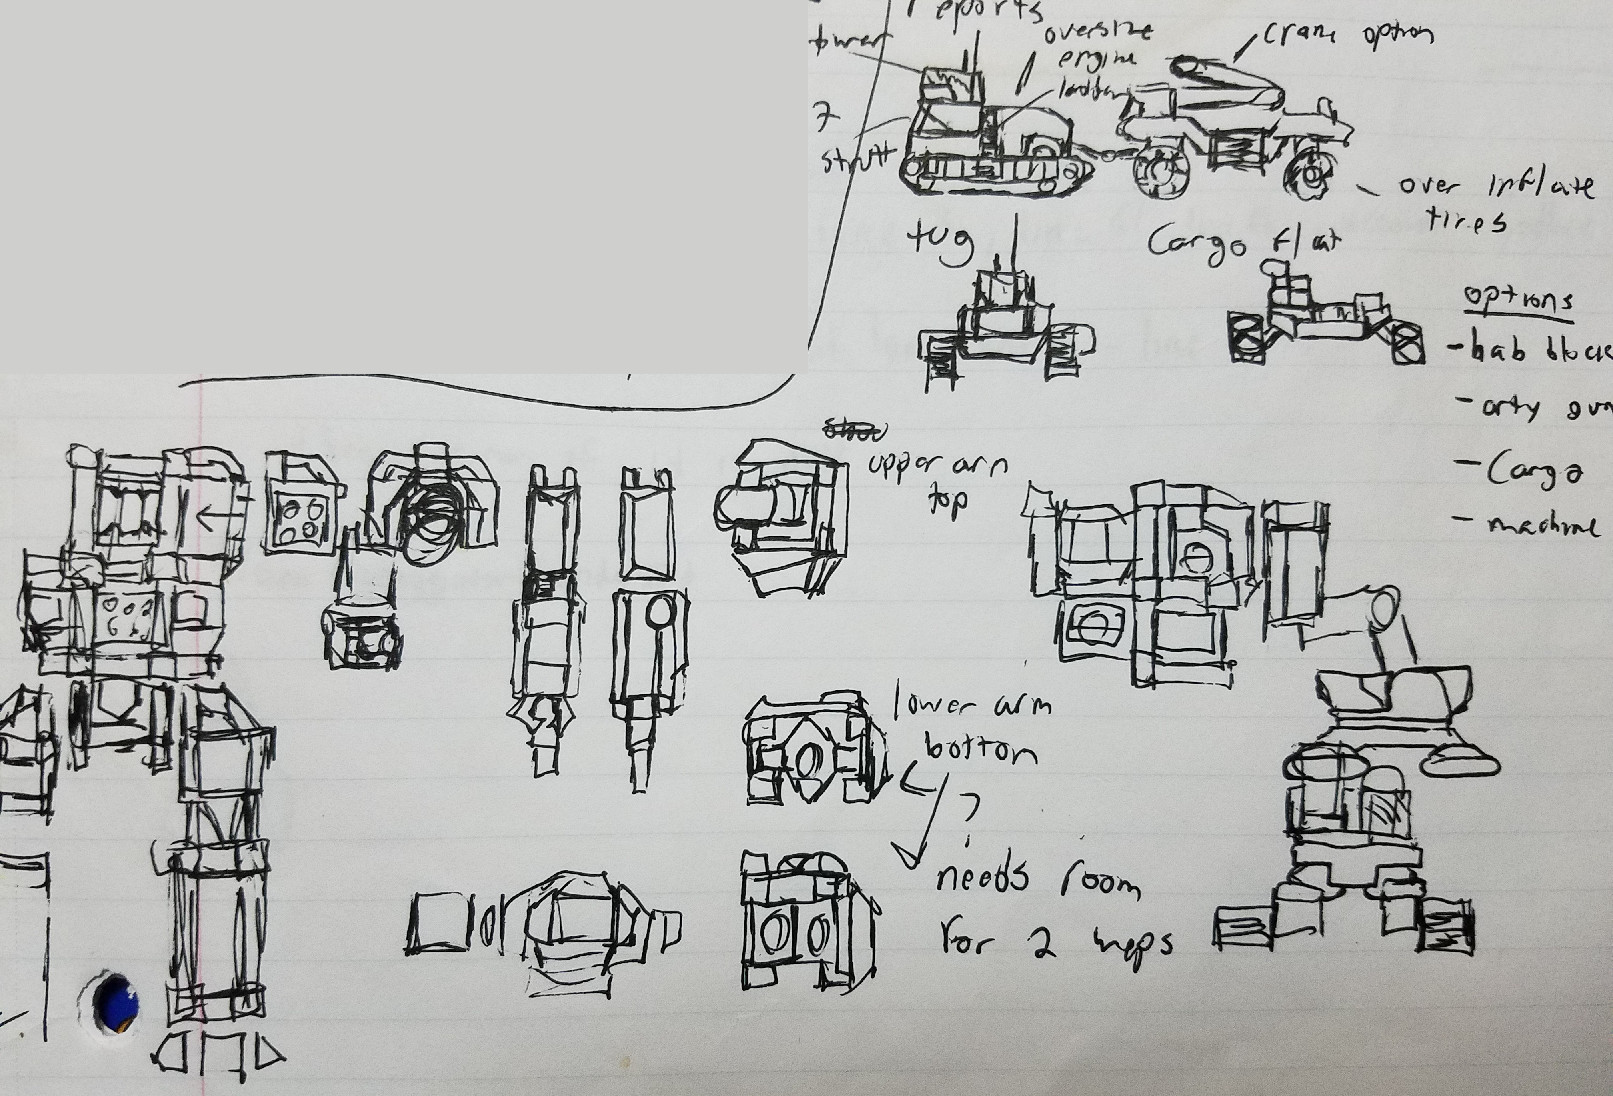 eports
tower
oversize
engine
ladder
crane option
strutt
over inflate
tires
tug
Cargo flat
options
- hab block
- arty gun
- Cargo
- machine
upper arm
top
lower arm
botton
?
needs room
for 2 weps